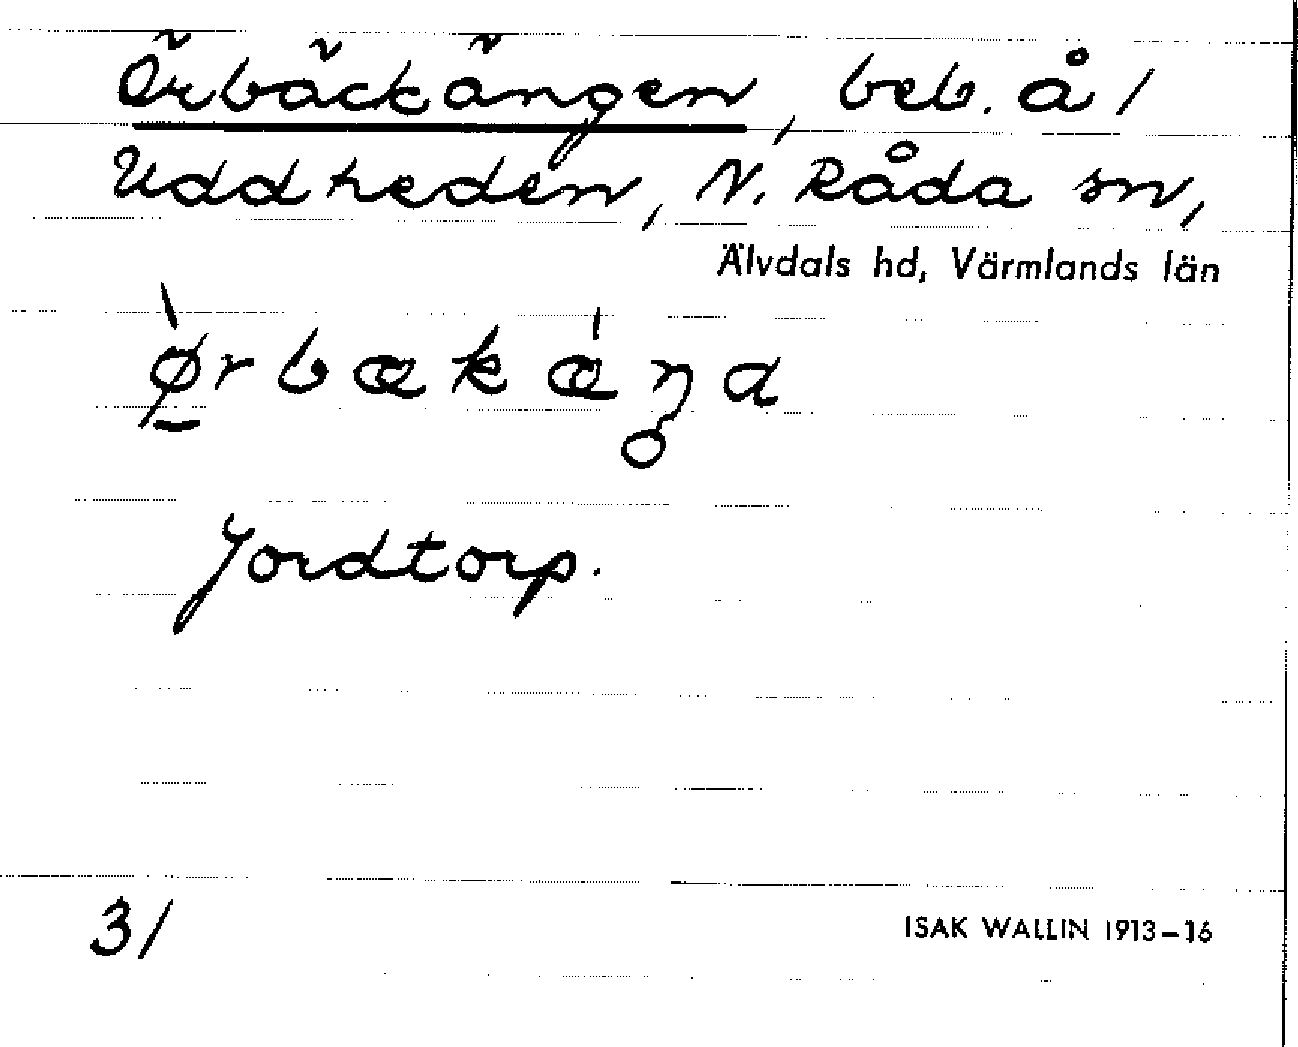 Örbäckängen, beb. å 1
Uddheden, N. Råda sn,
Älvdals hd, Värmlands län
ø̱̀rbækǽŋa
Jordtorp.
31
ISAK WALLIN 1913–16